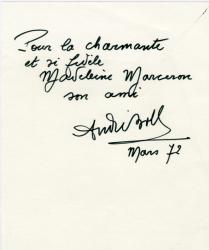 Pour la charmante
et si fidèle
Madeleine Marceron
son ami
André Boll
Mars 72